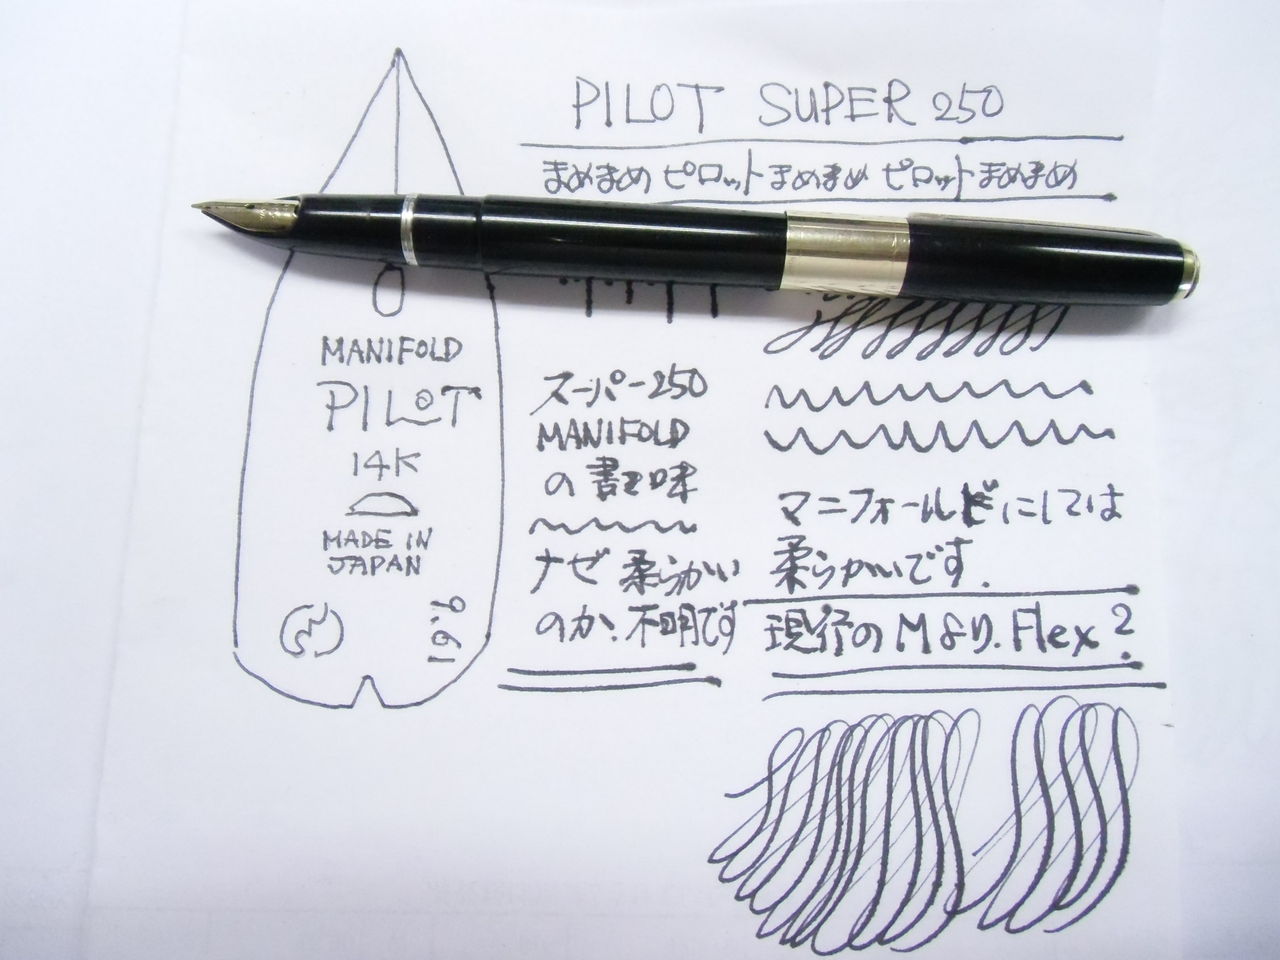 PILOT SUPER 250
まめまめ ピロット まめまめ ピロット まめまめ
MANIFOLD
PILOT
14K
MADE IN
JAPAN
9.61
スーパー250
MANIFOLD
の書き味
ナゼ柔らかい
のか、不明です
マニフォールドにしては
柔らかいです.
現行のMより.Flex?